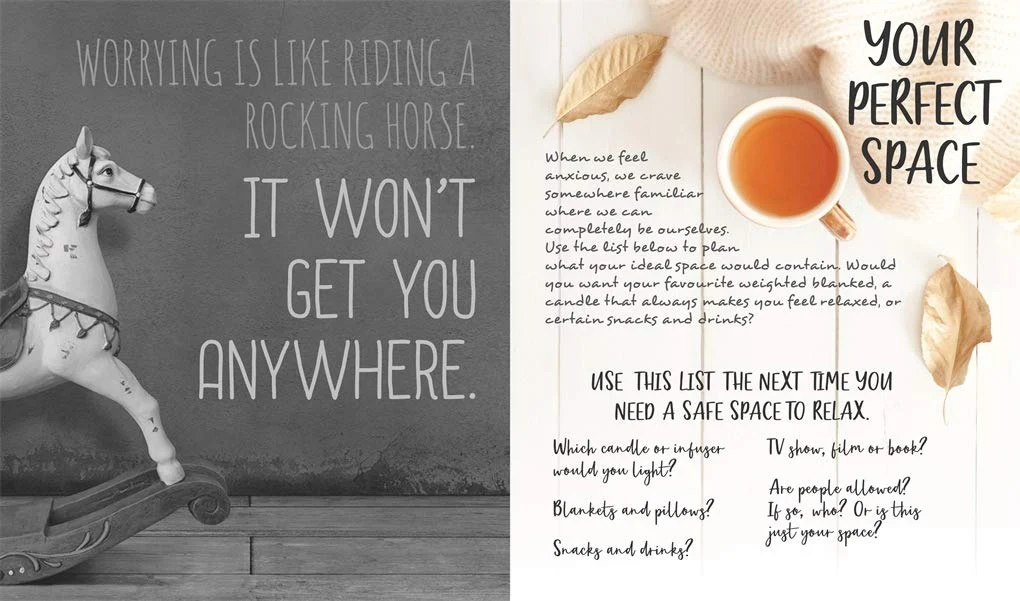 WORRYING IS LIKE RIDING A
ROCKING HORSE.
IT WON'T
GET YOU
ANYWHERE.
YOUR
PERFECT
SPACE
When we feel
anxious, we crave
somewhere familiar
where we can
completely be ourselves.
Use the list below to plan
what your ideal space would contain. Would
you want your favourite weighted blanked, a
candle that always makes you feel relaxed, or
certain snacks and drinks?
USE THIS LIST THE NEXT TIME YOU
NEED A SAFE SPACE TO RELAX.
Which candle or infuser
would you light?
Blankets and pillows?
Snacks and drinks?
TV show, film or book?
Are people allowed?
If so, who? Or is this
just your space?